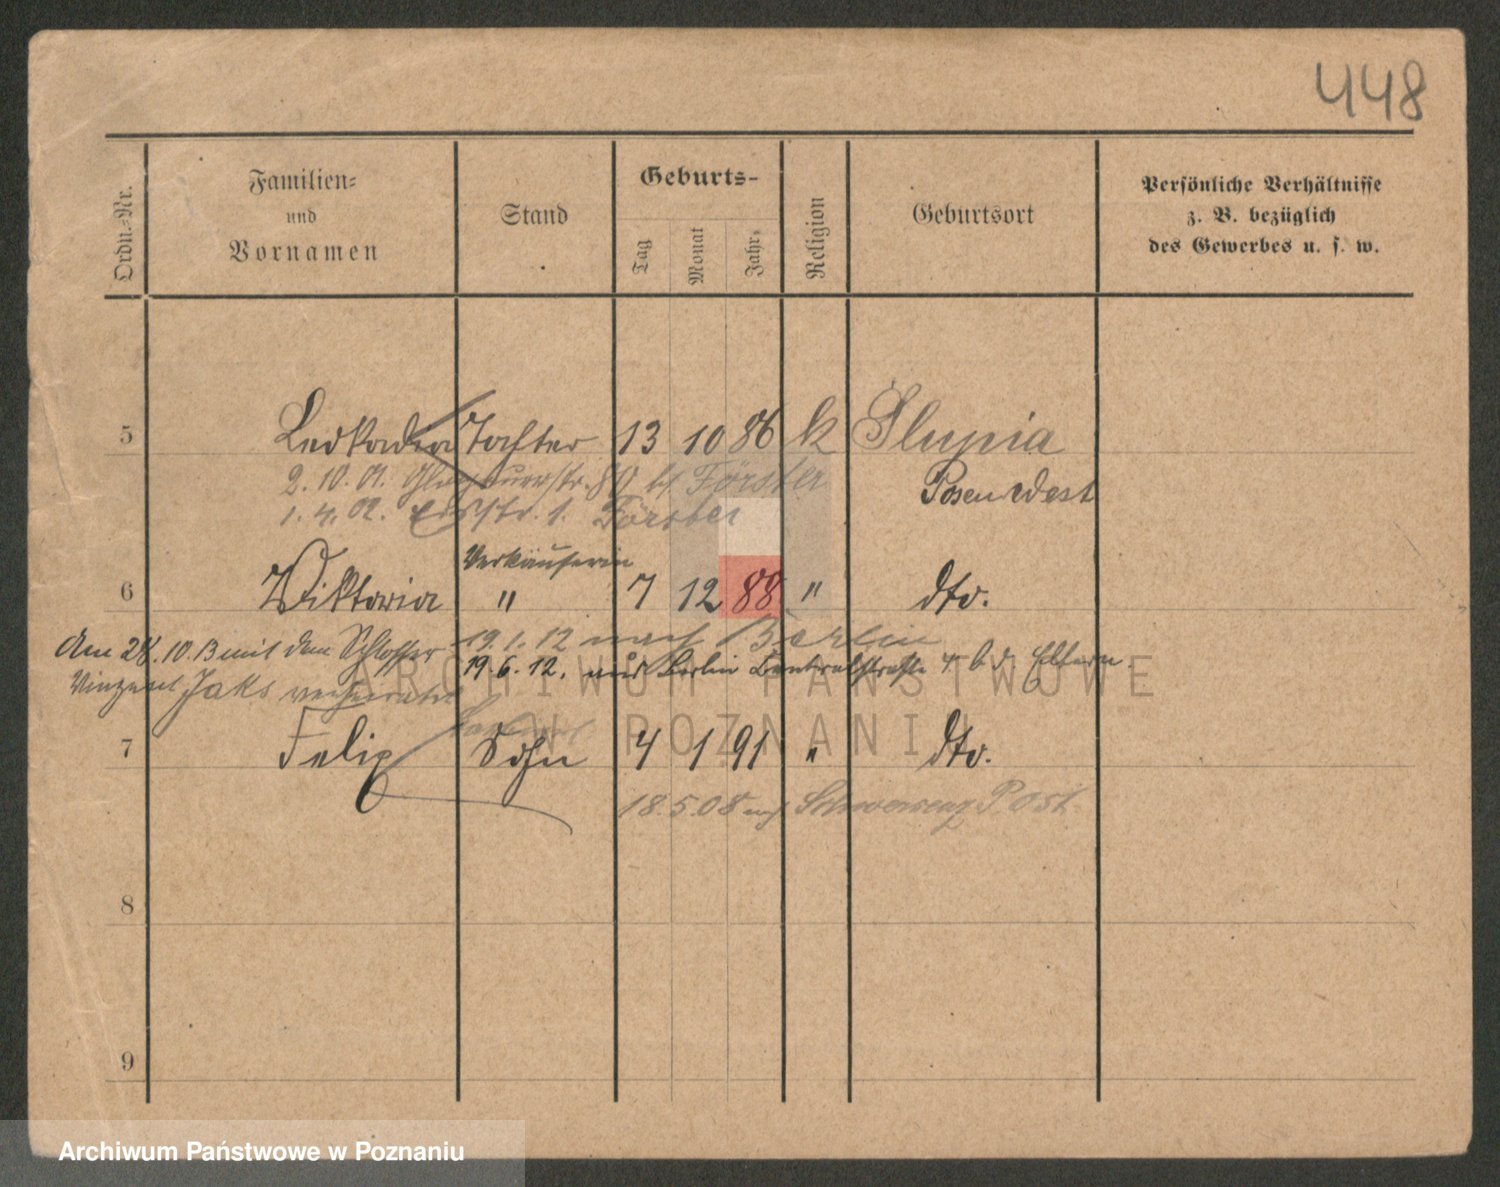 448
Ordn.-Nr.
Familien-
und
Vornamen
Stand
Geburts-
Tag
Monat
Jahr
Religion
Geburtsort
Persönliche Verhältnisse
z. B. bezüglich
des Gewerbes u. s. w.
5 Leokadia Tochter 13 10 86 k Slupia
2. 10. 01. 80 bei Förster Posen West
1. 4. 02. 1. Förster
Verkäuferin
6 Wiktoria " 7 12 88 " dto.
19. 1. 12 nach Berlin
Am 28. 10. 13 mit dem Schlosser
19. 6. 12. aus Berlin 4 b. d. Eltern
Vinzent Jaks verheiratet
7 Felix Sohn 4 1 91 " dto.
18. 5. 08 nach Schwersenz P. Ost.
8
9
ARCHIWUM PAŃSTWOWE
W POZNANIU
Archiwum Państwowe w Poznaniu